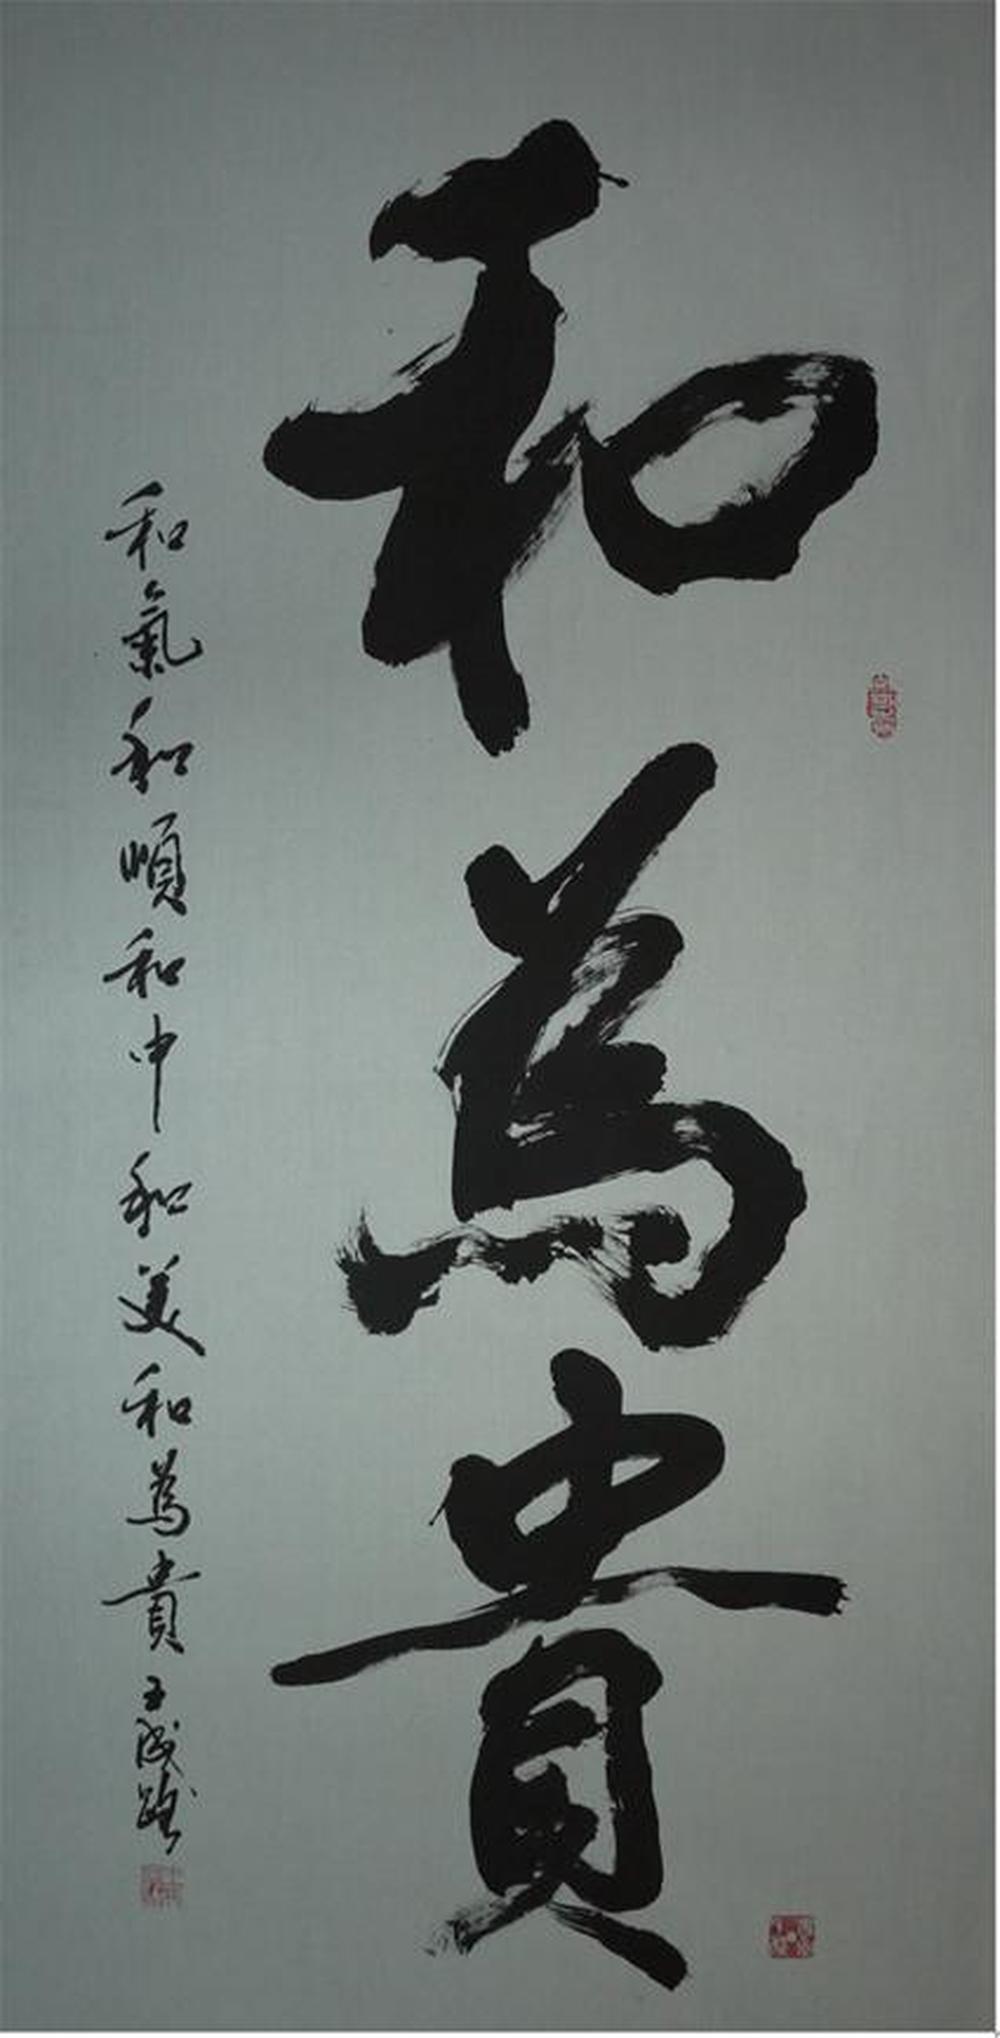 和為貴
和氣和順和中和美和為貴王成